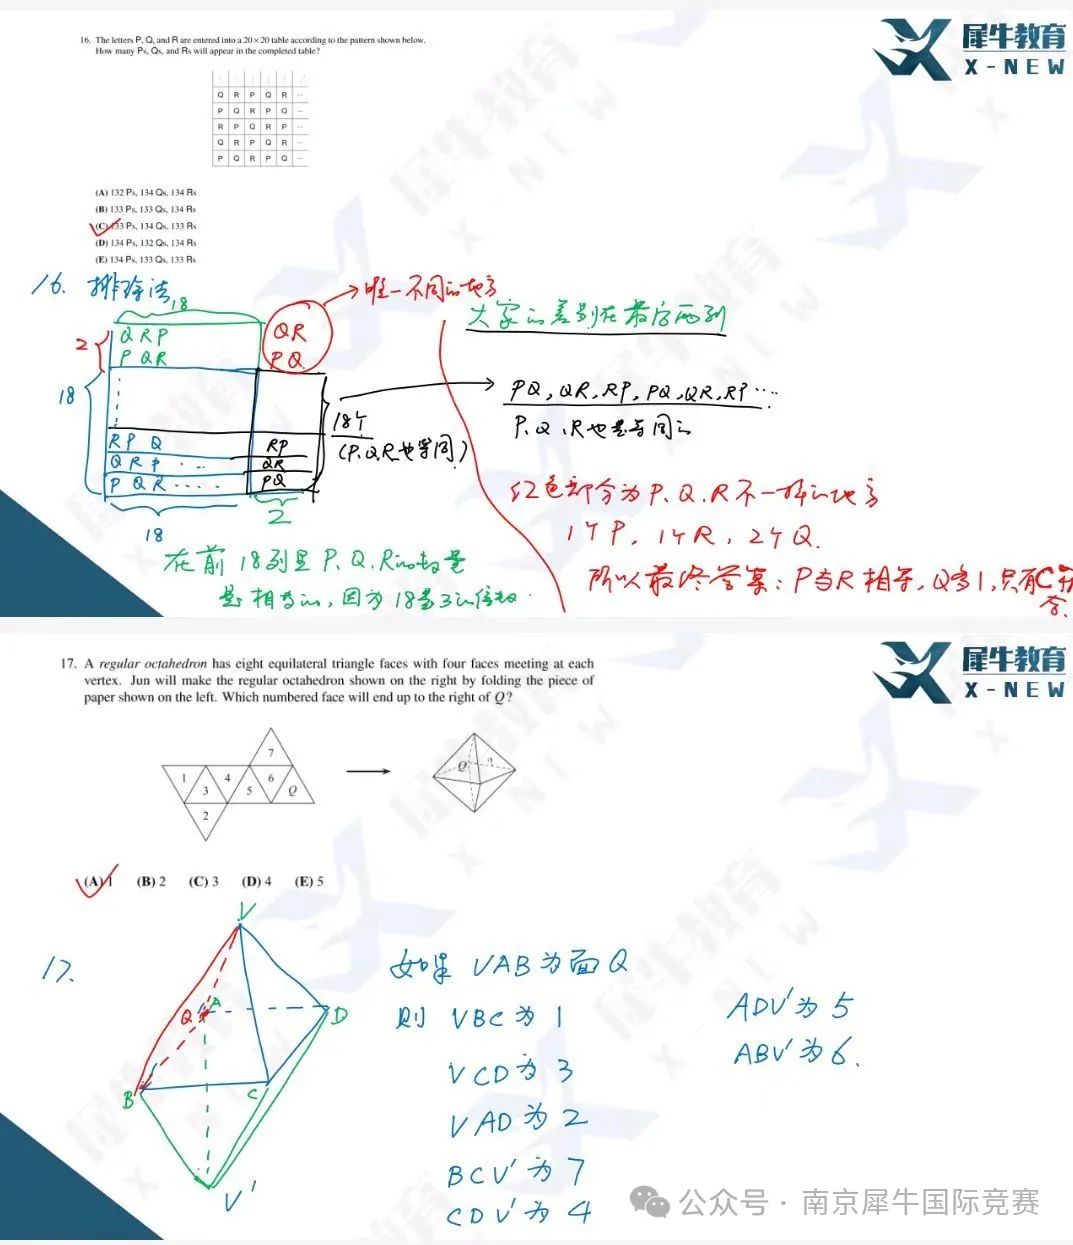 犀牛教育
X-NEW
16. The letters P, Q, and R are entered into a 20×20 table according to the pattern shown below.
How many Ps, Qs, and Rs will appear in the completed table?
Q R P Q R ...
P Q R P Q ...
R P Q R P ...
Q R P Q R ...
P Q R P Q ...
(A) 132 Ps, 134 Qs, 134 Rs
(B) 133 Ps, 133 Qs, 134 Rs
(C) 133 Ps, 134 Qs, 133 Rs
(D) 134 Ps, 132 Qs, 134 Rs
(E) 134 Ps, 133 Qs, 133 Rs
16. 排除法
18
唯一不同的地方
大家的差别在最后两列
2
Q R P
P Q R
QR
PQ
18
18个
(P.Q.R也等同)
PQ, QR, RP, PQ, QR, RP ...
P.Q.R也是等同的
R P Q
RP
Q R P ...
QR
P Q R .....
PQ
18
2
红色部分为P.Q.R不一样的地方
1个P, 1个R, 2个Q.
在前18列里P.Q.R的数量
是相当的,因为18是3的倍数.
所以最终答案:P与R相等,Q多1,只有C符合.
犀牛教育
X-NEW
17. A regular octahedron has eight equilateral triangle faces with four faces meeting at each
vertex. Jun will make the regular octahedron shown on the right by folding the piece of
paper shown on the left. Which numbered face will end up to the right of Q?
7
1 4 6
3 5 Q
2
Q ?
(A) 1 (B) 2 (C) 3 (D) 4 (E) 5
17.
V
Q A D
B C
V'
如果 VAB为面Q
则 VBC为1
VCD为3
VAD为2
BCV'为7
CDV'为4
ADV'为5
ABV'为6.
公众号·南京犀牛国际竞赛